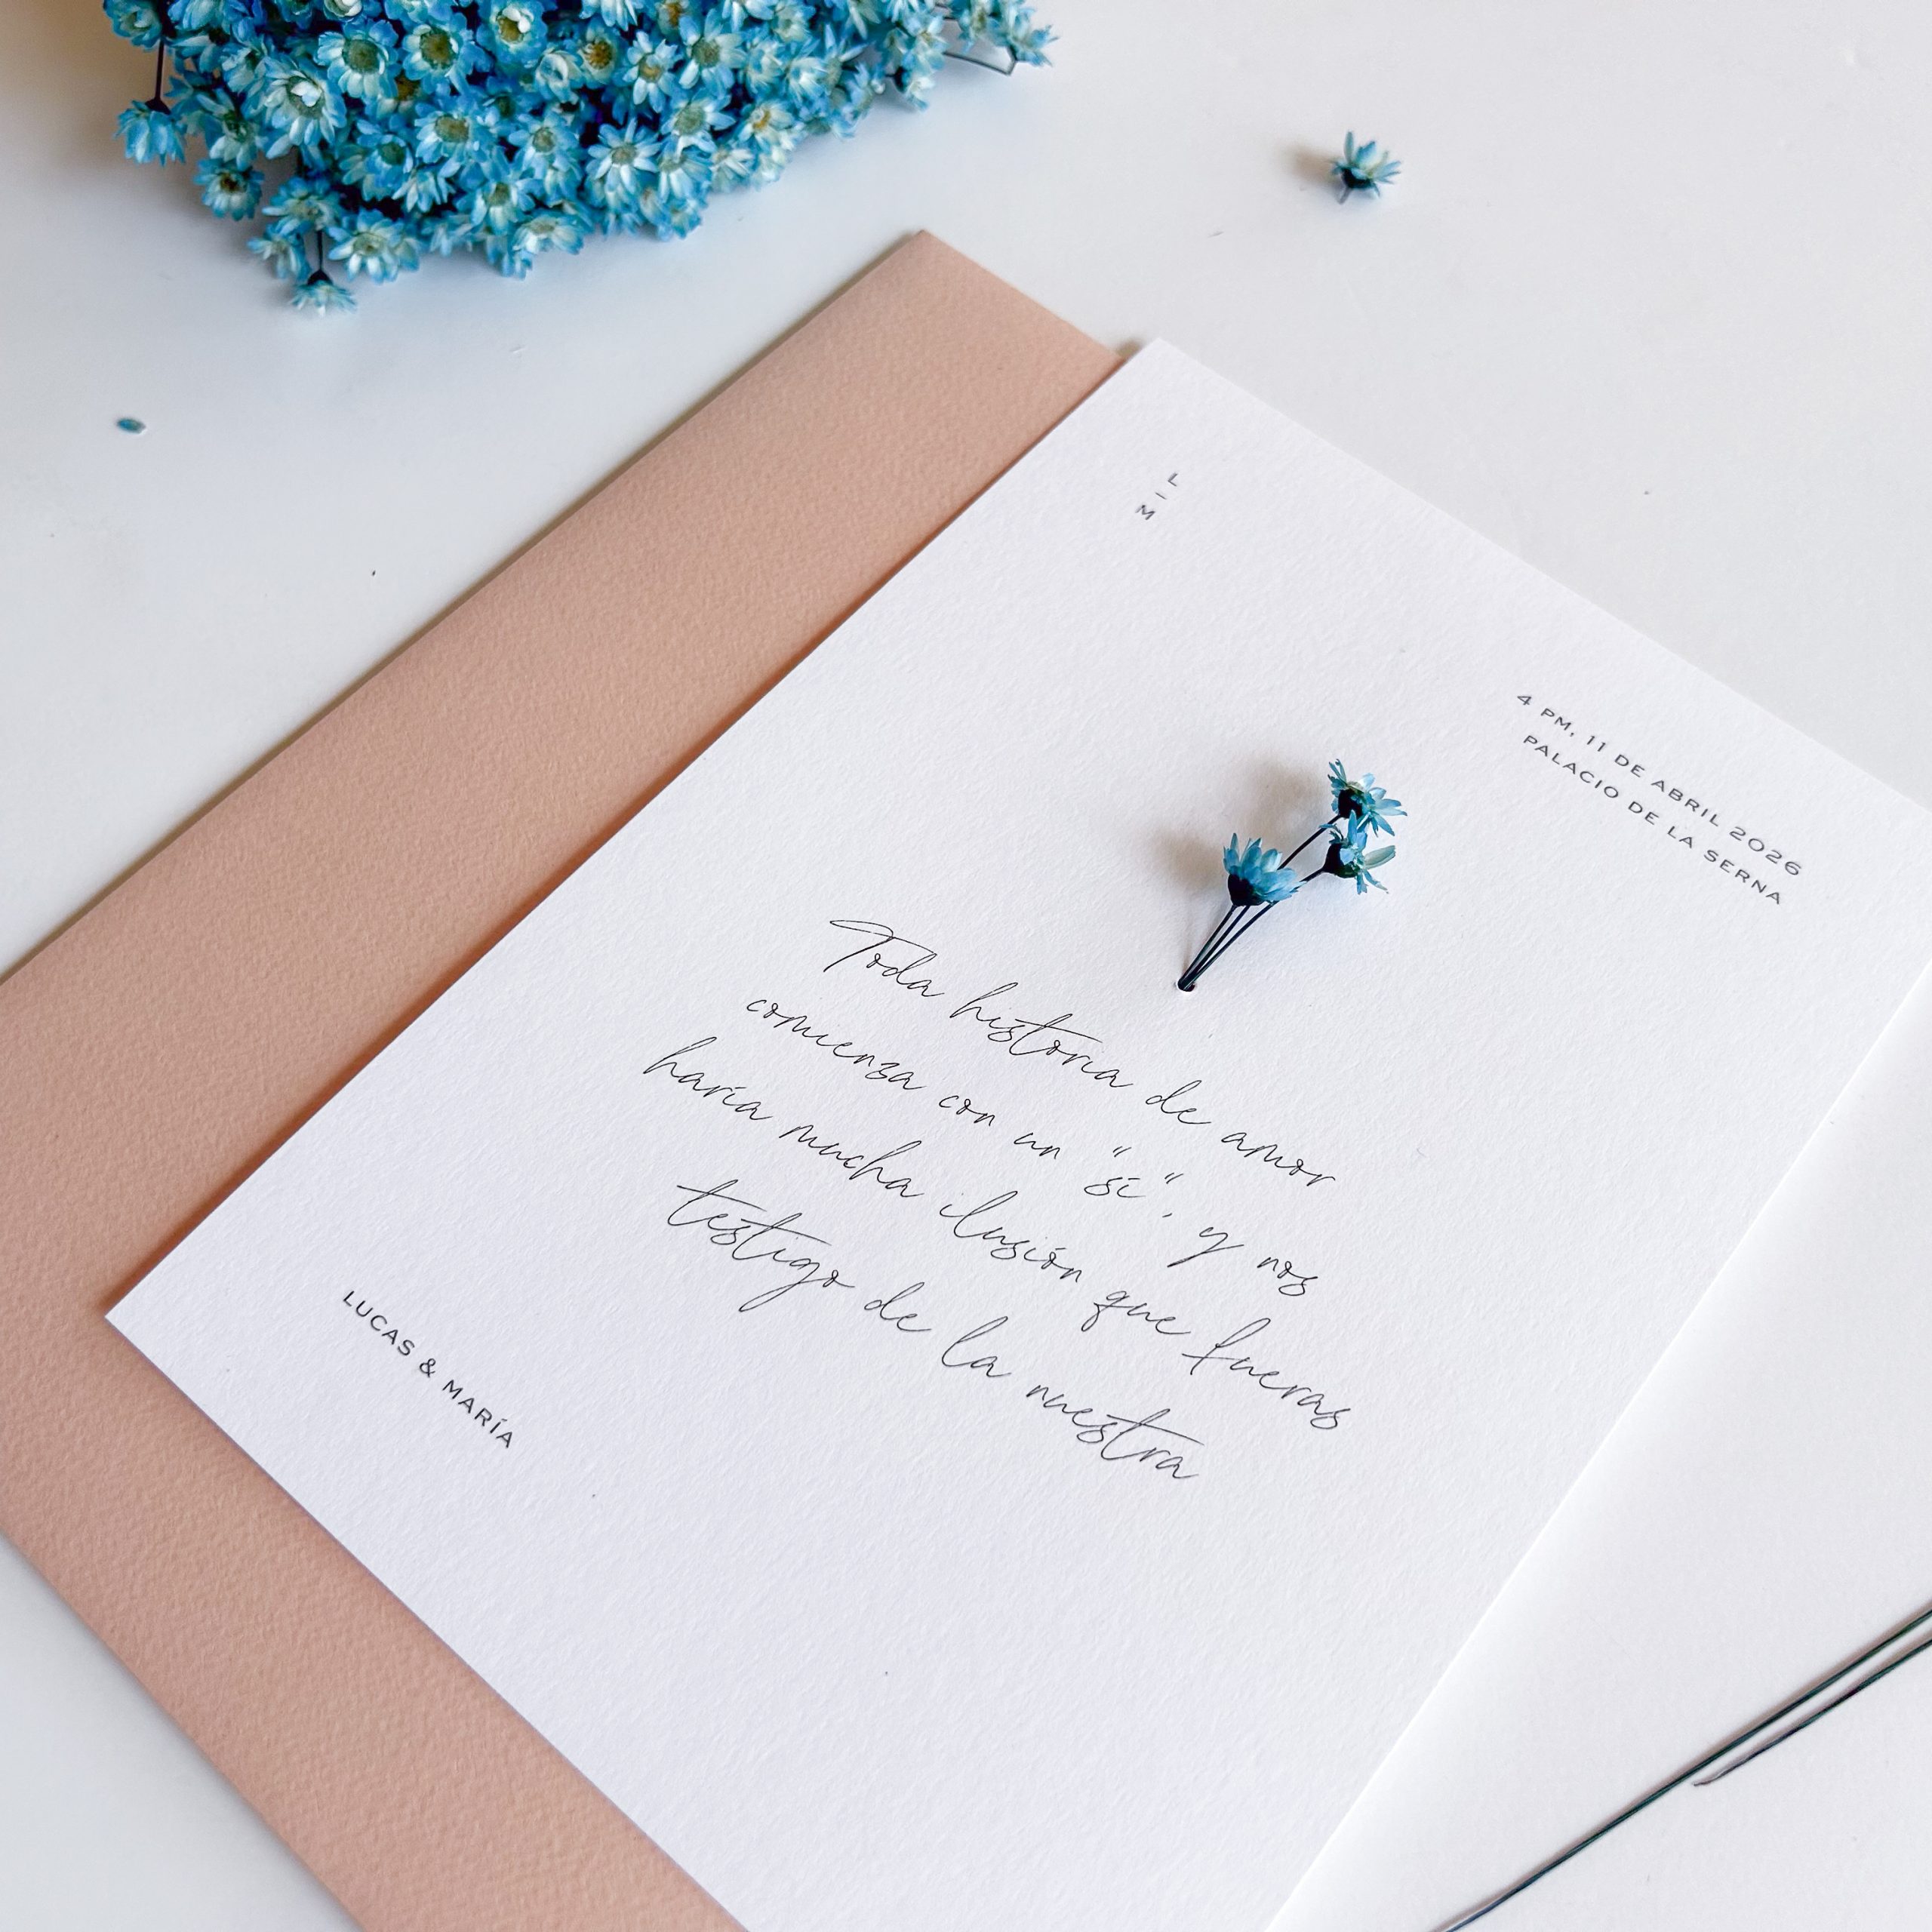 L
—
M
4 PM, 11 DE ABRIL 2026
PALACIO DE LA SERNA
Toda historia de amor
comienza con un "sí", y nos
haría mucha ilusión que fueras
testigo de la nuestra
LUCAS & MARÍA